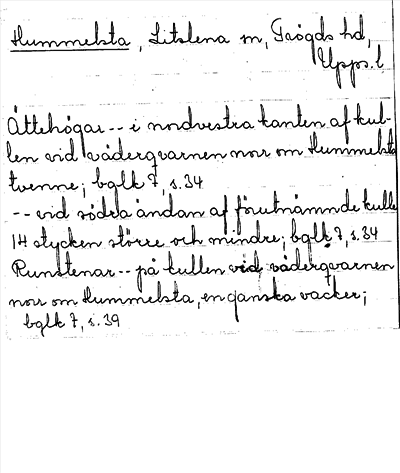 Hummelsta, Litslena sn, Trögds hd,
Upps. l.
Ättehögar -- i nordvestra kanten af kul-
len vid väderqvarnen norr om Hummelsta
tvenne; bglk 7, s. 34
-- vid södra ändan af förutnämnde kulle
14 stycken större och mindre; bglk 7, s. 34
Runstenar -- på kullen vid väderqvarnen
norr om Hummelsta, en ganska vacker;
bglk 7, s. 39